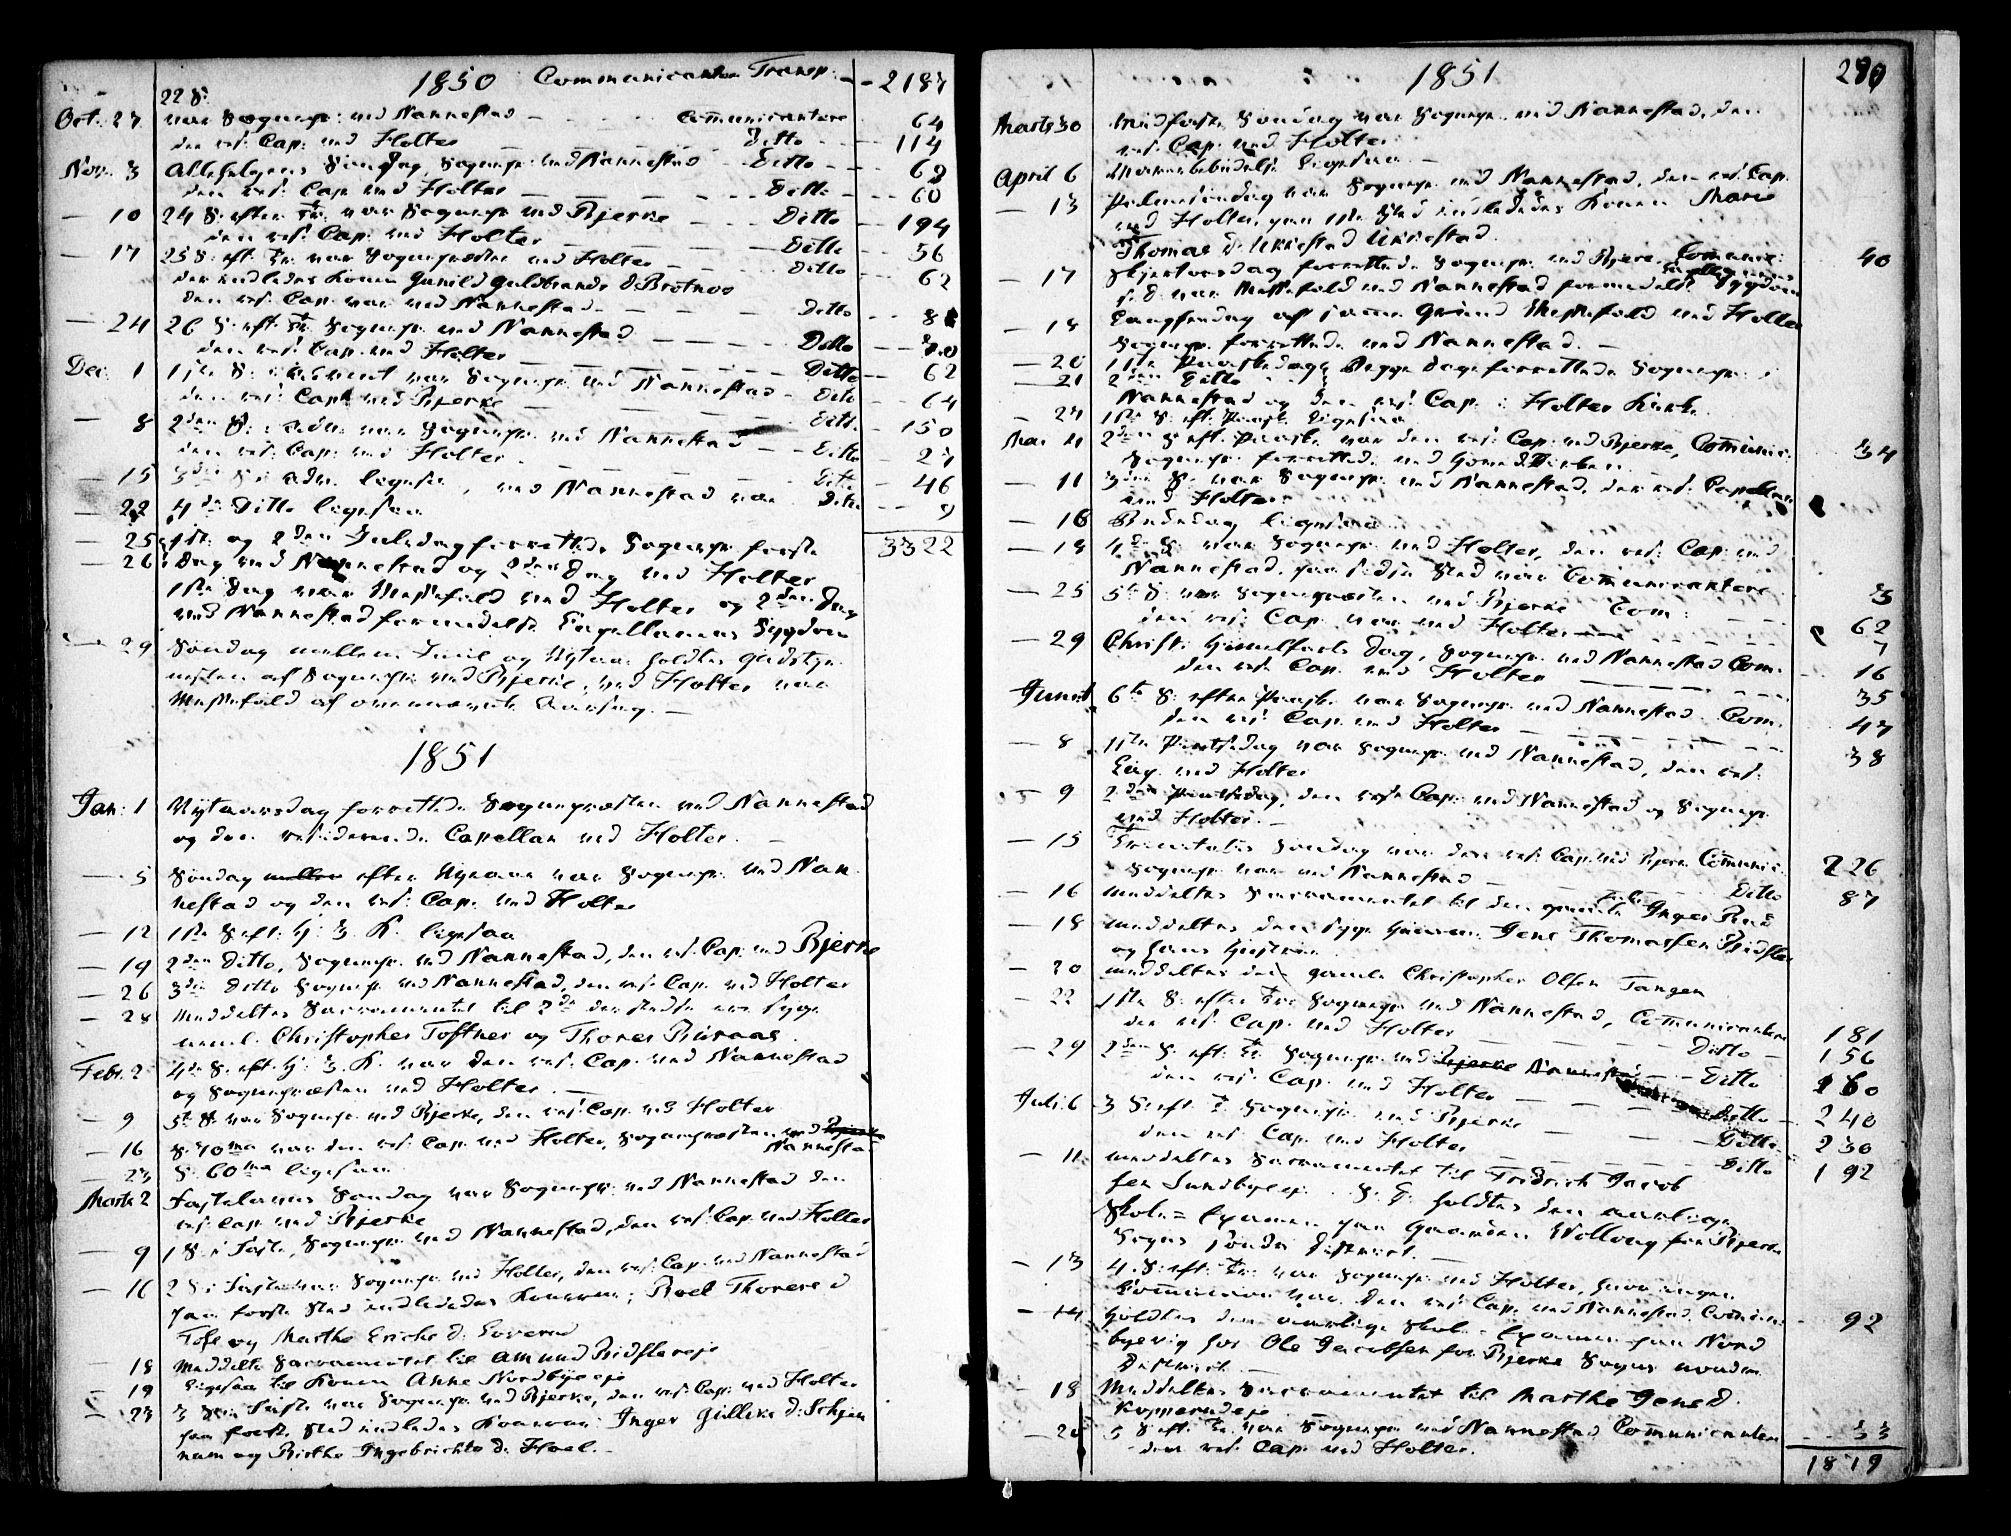 1850 Communicanter Transp: - 2187
22 S.
Oct. 27 var Sognepr. ved Nannestad - - Communicantere 64
den res. Cap. ved Holter - Ditto - 114
Nov. 3 Allehelgens Søndag Sognepr. ved Nannestad - Ditto - 68
den res. Cap. ved Holter - Ditto - 60
- 10 24 S. efter Tr. var Sognepr. ved Bjerke - Ditto - 194
den res. Cap. ved Holter - Ditto - 56
- 17 25 S. eft. Tr. var Sognepræsten ved Holter - Ditto - 62
der indledes Konen Gunild Guldbrands D. Brotnoe
den res. Cap. var ved Nannestad - Ditto - 8
- 24 26 S. eft. Tr. Sognepr. ved Nannestad - Ditto
den res. Cap. ved Holter - Ditto - 62
Dec. 1 1ste S. i Advent var Sognepr. ved Nannestad - Ditto - 64
den res. Cap. ved Bjerke - Ditto - 150
- 8 2den S. i Adv. var Sognepr. ved Nannestad - Ditto - 27
den res. Cap. ved Holter - Ditto - 46
- 15 3die S. i Adv. ligesaa, ved Nannestad var Ditto - 9
- 22 4de Ditto ligesaa
- 25 1ste og 2den Juledag forrettede Sognepr. første 3322
- 26 Dag ved Nannestad og 2den Dag ved Holter
1ste Dag var Messefald ved Holter og 2den Dag
ved Nannestad formedelst Capellanens Sygdom
- 29 Søndag mellem Juul og Nytaar holdtes Gudstje-
nesten af Sognepr. ved Bjerke, ved Holter var
Messefald af ovennævnte Aarsag. -
1851
Jan. 1 Nytaarsdag forrettede Sognepræsten ved Nannestad
og den residerende Capellan ved Holter. -
- 5 Søndag mellem efter Nytaar var Sognepr. ved Nan-
nestad og den res. Cap. ved Holter
- 12 1ste S. eft. H. 3. K. ligesaa
- 19 2den Ditto, Sognepr. ved Nannestad, den res. Cap. ved Bjerke
- 26 3die Ditto Sognepr. ved Nannestad, den res. Cap. ved Holter
- 28 Meddeltes Sacramentet til 2de syge
neml. Christopher Toftner og Thores
Febr. 2 4de S. eft. H. 3. K. var den res. Cap. ved Nannestad
og Sognepræsten ved Holter. -
- 9 5te S. var Sognepr. ved Bjerke, den res. Cap. ved Holter
- 16 S. 70ma var den res. Cap. ved Holter, Sognepræsten ved Bjerke Nannestad
- 23 S. 60ma ligesaa
Marts 2 Fastelavns Søndag var Sognepr. ved Nannestad den
res. Cap. ved Bjerke
- 9 1 S. i Faste, Sognepr. ved Nannestad, den res. Cap. ved Holter
- 16 2 S. i Faste var Sognepr. ved Holter, den res. Cap. ved Nannestad
paa første Sted indlededes Konerne: Thorers d.
Tofs og Marthe Erichs d.
- 18 Meddelte Sacramentet til Amund
- 19 ligesaa til Konen Anne Nordbyeeje
- 23 3 S. i Faste var Sognepr. ved Bjerke, den res. Cap. ved Holter
paa første Sted indledes Konerne: Inger Gulliks d.
og Birthe Ingebrichts d. Hoel. -
1851 280
Marts 30 Midfaste Søndag var Sognepr. ved Nannestad, den
res. Cap. ved Holter.
April 6 Mariæ Bebudelse ligesaa. -
- 13 Palmesøndag var Sognepr. ved Nannestad, den res. Cap.
ved Holter, paa 1ste Sted indlededes Konen Marie
Thomas d. Ukkestad Ukkestad.
- 17 Skjærtorsdag forrettede Sognepr. ved Bjerke, Communic: 40
var Messefald ved Nannestad formedelst Capellanens Sygdom
- 18 Langfredag af samme Grund Messefald ved Holter
Sognepr. forrettede ved Nannestad. -
- 20 1ste Paaskedag Begge Dage forrettede Sognepr. i
- 21 2den Ditto
Nannestad og den res. Cap. i Holter Kirke.
- 27 1ste S. eft. Paaske ligesaa
Mai 4 2den S. eft. Paaske var den res. Cap. ved Bjerke, Communic: 34
Sognepr. forrettede ved Hovedkirken
- 11 3die S. var Sognepr. ved Nannestad, den res. Capellan
ved Holter
- 16 Bededag ligesaa
- 18 4de S. var Sognepr. ved Holter, den res. Cap. ved
Nannestad, paa sidste Sted var Communicantere
- 25 5te S. var Sognepræsten ved Bjerke Com: 62
den res. Cap. var ved Holter - 7
- 29 Christi Himmelfarts Dag, Sognepr. ved Nannestad Com. 16
den res. Cap. ved Holter - 35
Juni 1 6te S. efter Paaske var Sognepr. ved Nannestad Com. 47
den res. Cap. ved Holter - 38
- 8 1ste Pintsedag var Sognepr. ved Nannestad, den res.
Cap. ved Holter
- 9 2den Pintsedag, den resp. Cap. ved Nannestad og Sognepr.
ved Holter. -
- 15 Trinitatis Søndag var den res. Cap. ved Bjerke Communic. 226
Sognepr. var ved Nannestad - Ditto 87
- 16 meddeltes Sacramentet til den gamle Inger
- 18 meddeltes den syge Jens Thomassen
og hans Hustru
- 20 meddeltes den gamle Christopher Olsen Tangen
- 22 1ste S. efter Tre. Sognepr. ved Nannestad, Communicantere 181
den res. Cap. ved Holter - Ditto - 156
- 29 2den S. eft. Tr. Sognepr. ved Bjerke Nannestad - Ditto 160
den res. Cap. ved Holter - Ditto - 240
Juli 6 3 S. eft. T. Sognepr. ved Bjerke - Ditto 230
den res. Cap. ved Holter - Ditto 192
- 11 meddeltes Sacramentet til Fredrich Jacob-
sen Sundbyeeje. S. D. holdtes den aarlige
Skole-Examen paa Gaarden Wollaug for Bjerke
Sogns søndre District. -
- 13 4. S. eft. Tr. var Sognepr. ved Holter, hvor ingen
Communion var. den res. Cap. ved Nannestad Commun: 92
- 14 Holdtes den aarlige Skole-Examen paa Nord-
byevig hos Ole Jacobsen for Bjerke Sogns nordre
District. -
- 18 Meddeltes Sacramentet til Marthe Jens d.
Kopperudeje
- 20 5 S. eft. Tr. var Sognepr. ved Nannestad Communicantere - 33
den res. Cap. ved Holter. 1819